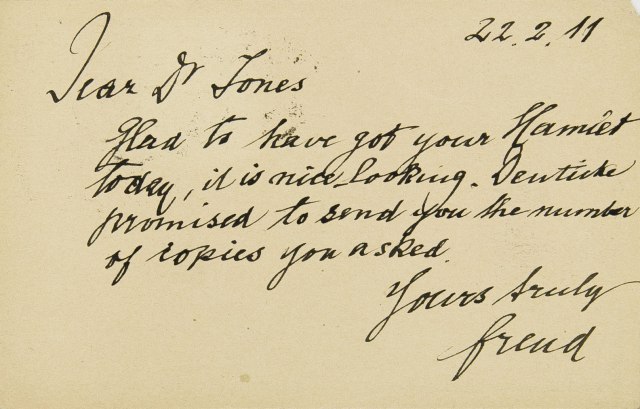 22.2.11
Dear Dr Jones
Glad to have got your Hamlet
today, it is nice looking. Deuticke
promised to send you the number
of copies you asked.
Yours truly
Freud